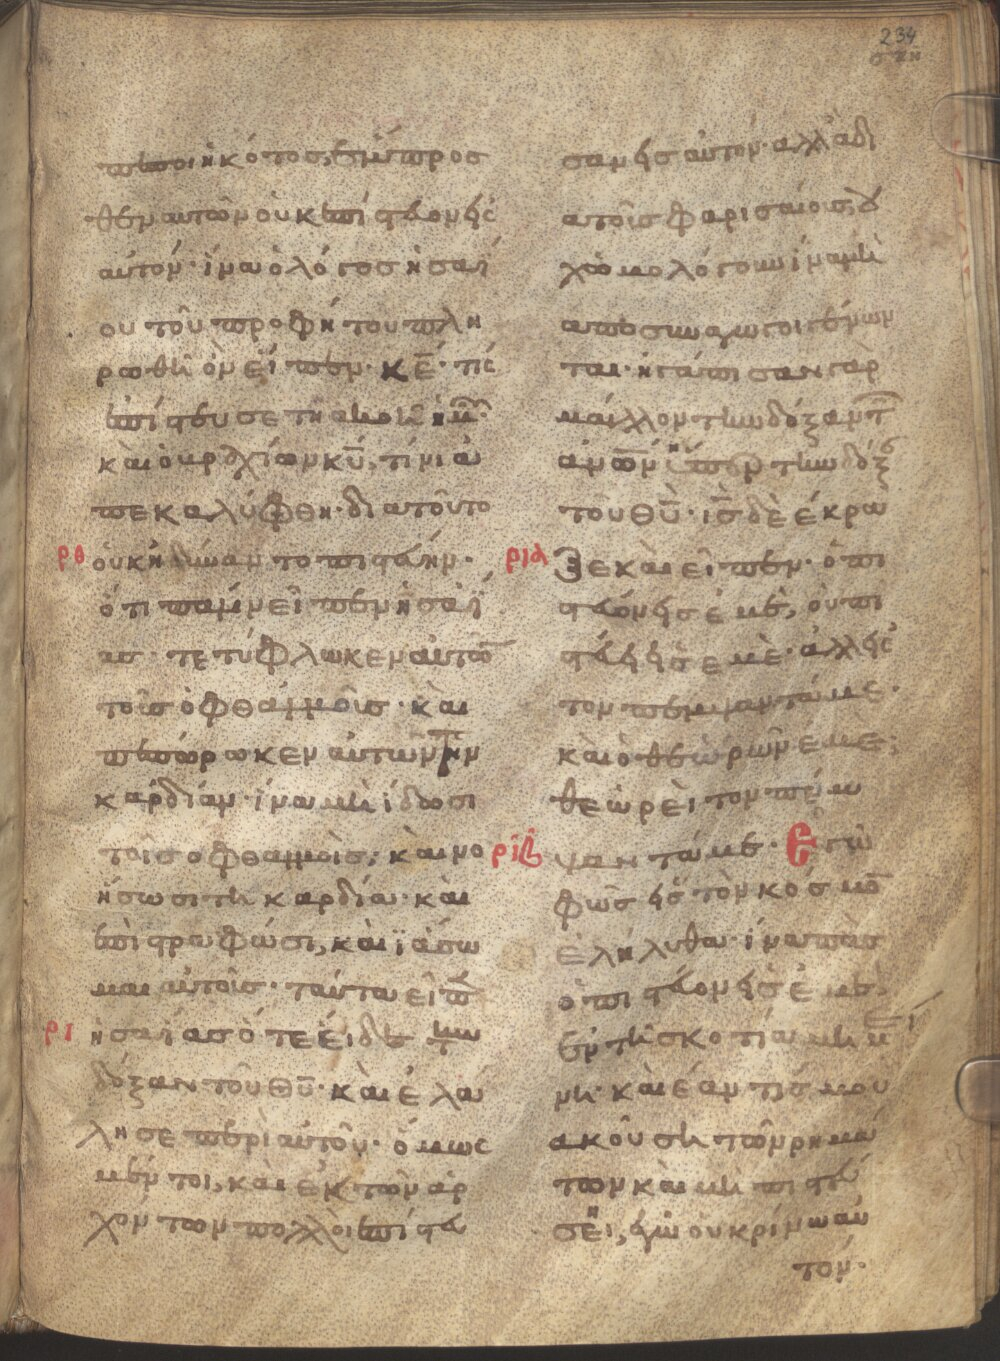 234
σκη
πεποιηκότος, ἔμπροσ
θεν αυτῶν ουκ επίστευον εις
αὐτόν· ἵνα ὁ λόγος ησαΐ
ου τοῦ προφήτου πλη
ρωθη ὁν εἶπεν· κε̄· τίς
επίστευσε τη ακοῆ ημῶ·
και ο βραχίων κῡ, τίνι ἀ
πεκαλύφθη· δια τοῦτο
ρθ οὐκ ηδύναντο πιστεύειν·
ὅτι πάλιν εἶπεν ησαΐ
ας· τετύφλωκεν αὐτῶ
τοῖς ὀφθαλμοῖς· καὶ
πεπώρωκεν αὐτῶν τὴν
καρδίαν· ἵνα μὴ ἴδωσι
τοῖς οφθαλμοῖς, καὶ νο
ήσωσι τη καρδία· καὶ
επιστραφῶσι, καὶ ϊάσω
μαι αὐτοῖς· ταῦτα εἶπεν
ρι ησαΐας ὅτε εἶδε την
δόξαν τοῦ θῡ· καὶ ἐλά
λησε περὶ αὐτοῦ· ὅμως
μέντοι, καὶ ἐκ τῶν ἀρ
χόντων πολλοὶ επίστευ
σαν εἰς αὐτόν· αλλὰ δι
α τοῖς φαρισαίοις, οὐ
χ ωμολόγουν ἵνα μὴ
αποσυναγωγοι γένων
ται· ηγάπησαν γὰρ
μάλλον την δόξαν τ
ἀνων ἤπερ την δόξ
τοῦ θῡ· ις̄ δὲ έκρα
ρια ξε καὶ εἶπεν· ὁ πι
στεύων εἰς ἐμὲ, οὐ πι
στεύει εἰς εμὲ· ἀλλ εἰς
τον πέμψαντά με·
και ὁ θεωρῶν ἐμὲ,
θεωρεῖ τον πέμ
ριβ ψαντά με· Εγὼ
φῶς εἰς τὸν κόσμο
ἐλήλυθα· ἵνα πᾶς
ὁ πιστεύων εἰς ἐμὲ·
ἐν τῆ σκοτία μη μεί
νη· καὶ εάν τίς μου
ακούση τῶν ρημά
των και μη πιστεύ
ση, εγὼ οὐ κρίνω αὐ
τόν·